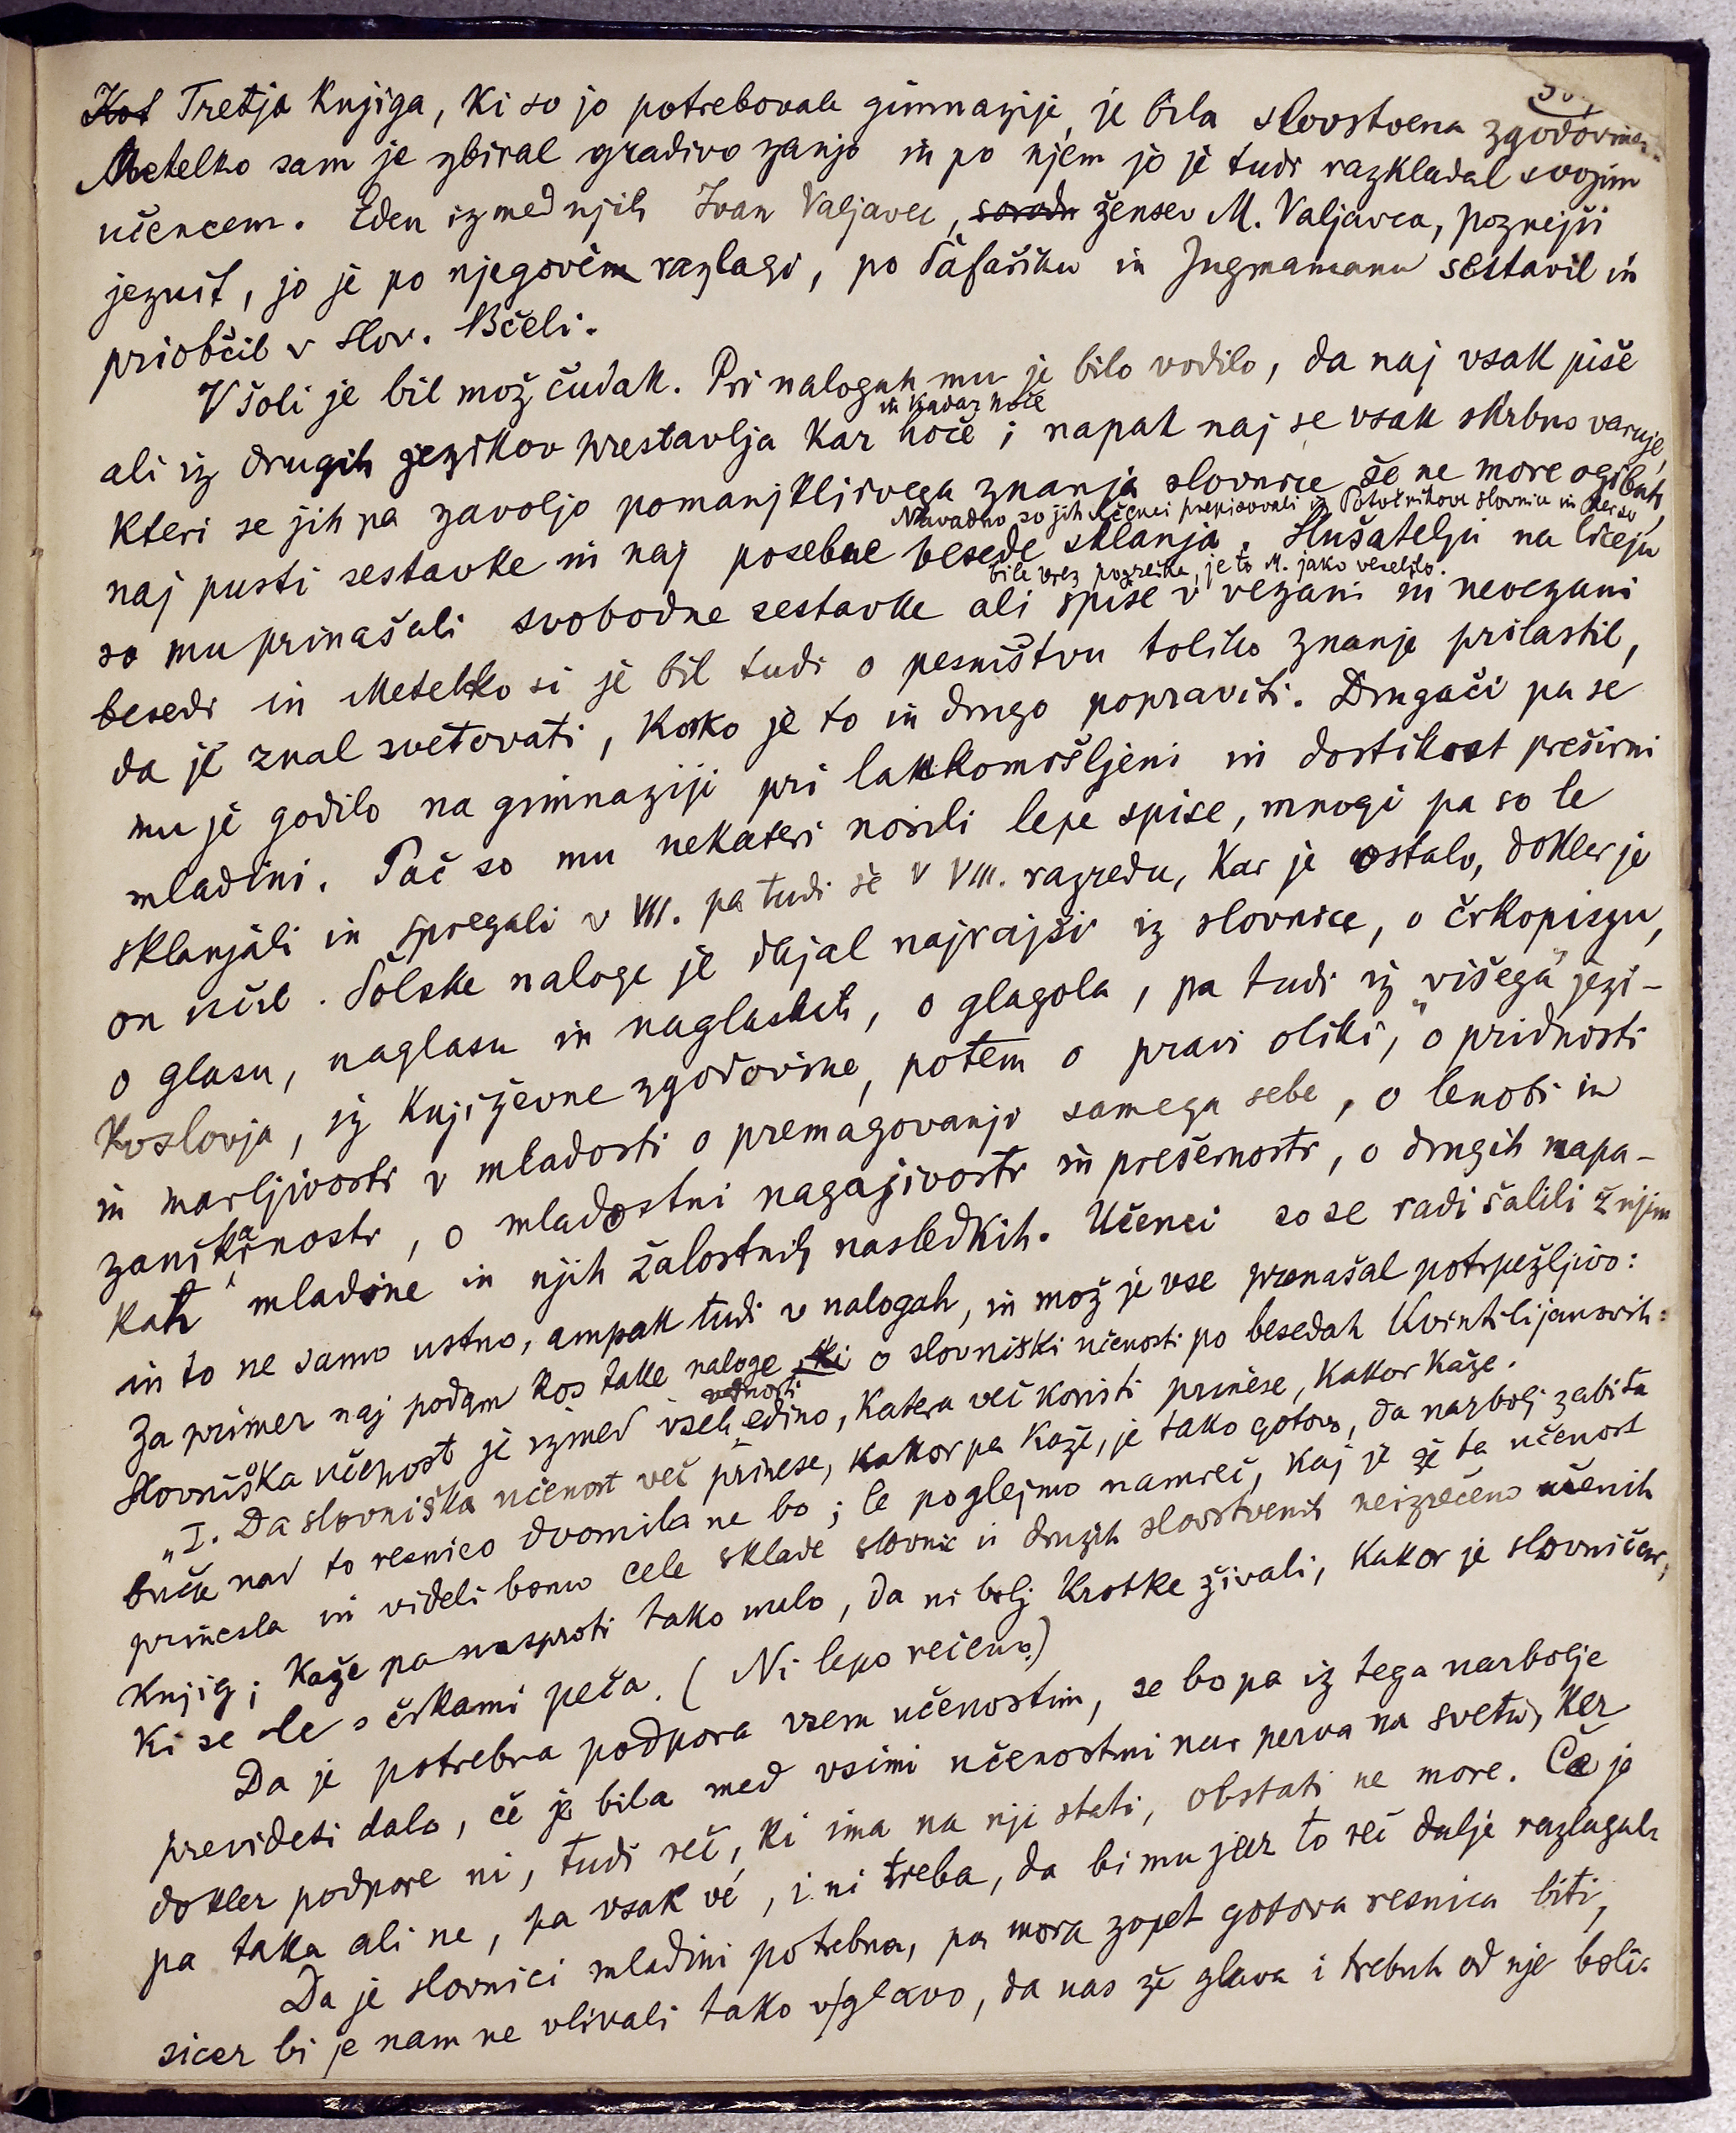 Kot Tretja knjiga, ki so jo potrebovale gimnazije, je bila slovstvena zgodovina.
Metelko sam je zbiral gradivo zanjo in po njem jo je tudi razkladal svojim
učencem. Eden izmed njih Ivan Valjavec, sorodn ženser M. Valjavca, poznejši
jezuit, jo je po njegovem razlagi, po Šafařiku in Jugmamanu sestavil in
priobčil v Slov. Bčeli.
V šoli je bil mož čudak. Pri nalogah mu je bilo vodilo, da naj vsak piše
in kadar hoče
ali iz drugih jezikov prestavlja kar hoče; napak naj se vsak skrbno varuje,
kteri se jih pa zavoljo pomanjklivega znanja slovnice še ne more ogibati,
Navadno so jih učenci prepisovali iz Potočnikove slovnice in ker so
naj pusti sestavke in naj posebne besede sklanja. Slušatelji na liceju
bile brez pogreška, je to M. jako veselilo.
so mu prinašali svobodne sestavke ali spise v vezani in nevezani
besedi in Metelko si je bil tudi o pesništvu toliko znanje prilastil,
da je znal svetovati, kako je to in drugo popraviti. Drugači pa se
mu je godilo na gimnaziji pri lahkomišljeni in dostikrat preširni
mladini. Pač so mu nekateri nosili lepe spise, mnogi pa so le
sklanjali in spregali v VII. pa tudi še v VIII. razredu, kar je ostalo, dokler je
on učil. Šolske naloge je dajal najrajši iz slovnice, o črkopisju,
o glasu, naglasu in naglaskih, o glagola, pa tudi iz „višega" jezi-
koslovja, iz književne zgodovine, potem o pravi oliki, o pridnosti
in marljivosti v mladosti o premagovanji samega sebe, o lenobi in
zanikarnosti, o mladostni nagajivosti in prešernosti, o drugih napa-
kah mladine in njih žalostnih nasledkih. Učenci so se radi šalili ž njim
in to ne samo ustno, ampak tudi v nalogah, in mož je vse prenašal potrpežljivo:
Za primer naj podam kos take naloge, ki o slovniški učenosti po besedah Kvintilijanovih:
vednosti
Slovniška učenost je izmed vseh edino, katera več koristi prinese, kakor kaže.
„I. Da slovniška učenost več prinese, kakor pa kaže, je tako gotovo, da narbolj zabita
buča nad to resnico dvomila ne bo; le poglejmo namreč, kaj je že ta učenost
prinesla in videli bomo cele sklade slovnic in druzih slovstvenih neizrečeno učenih
knjig; kaže pa nasproti tako malo, da ni bolj krotke živali, kakor je slovničar,
ki se le s črkami peča. (Ni lepo rečeno.)
Da je potrebna podpora vsem učenostim, se bo pa iz tega narbolje
previdesi dalo, če je bila med vsimi učenostmi nar perva na svetu, ker
dokler podpore ni, tudi reč, ki ima na nji stati, obstati ne more. Če je
pa taka ali ne, pa vsak vé, i ni treba, da bi mu jaz to reč dalje razlagal.
Da je slovnici mladini potrebna, pa mora zopet gotova resnica biti,
sicer bi je nam ne vlivali tako v glavo, da nas že glava i trebuh od nje boli.